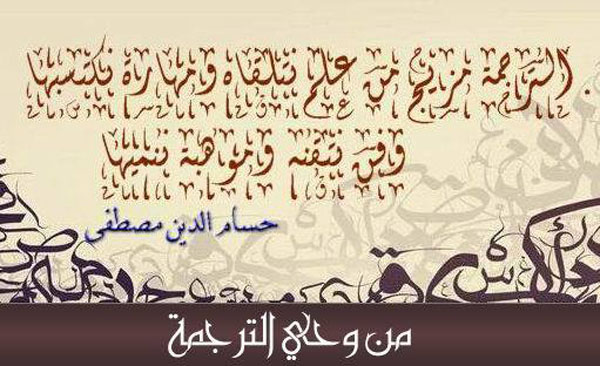 الترجمة مزيج من علم نتلقاه ومهارة نكتسبها
وفن نتقنه وموهبة ننميها
حسام الدين مصطفى
من وحي الترجمة